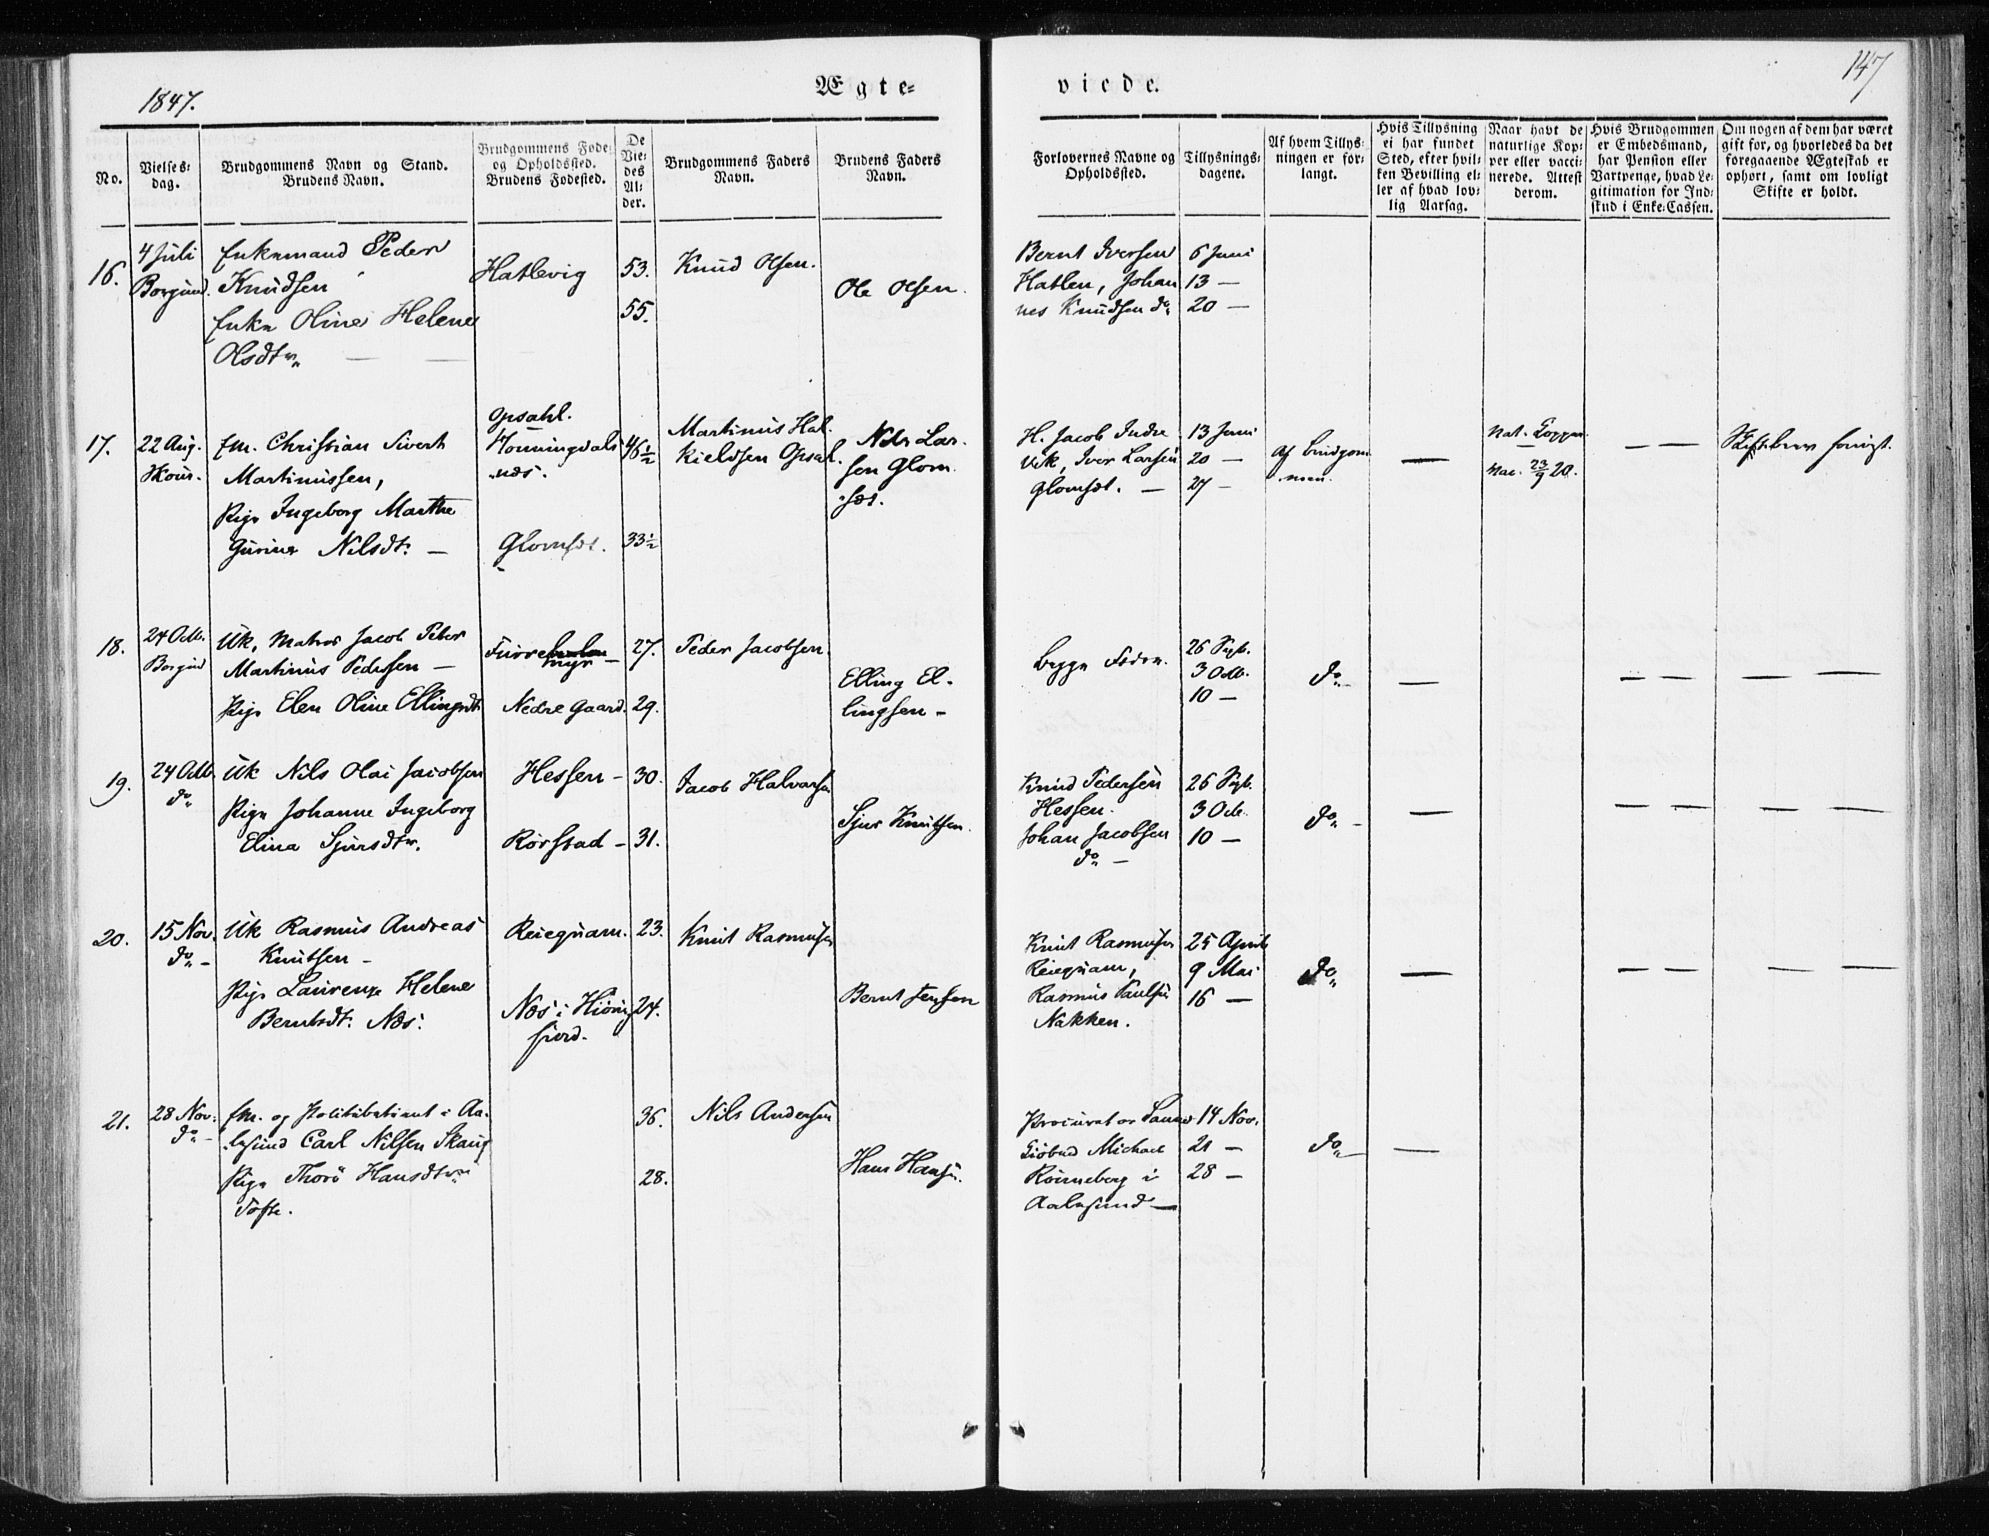 1847.
Ægte=
viede.
147
No.
Vielses=
dag.
Brudgommens Navn og Stand.
Brudens Navn.
Brudgommens Føde=
og Opholdssted.
Brudens Fødested.
De
Vie=
des
Al=
der.
Brudgommens Faders
Navn.
Brudens Faders
Navn.
Forlovernes Navne og
Opholdssted.
Tillysnings=
dagene.
Af hvem Tillys=
ningen er for=
langt.
Hvis Tillysning
ei har fundet
Sted, efter hvil=
ken Bevilling el=
ler af hvad lov=
lig Aarsag.
Naar havt de
naturlige Kop=
per eller vacci=
nerede. Attest
derom.
Hvis Brudgommen
er Embedsmand,
har Pension eller
Vartpenge, hvad Le=
gitimation for Ind=
skud i Enke=Cassen.
Om nogen af dem har været
gift før, og hvorledes da det
foregaaende Ægteskab er
ophørt, samt om lovligt
Skifte er holdt.
16.
4 Juli
Borgund.
Enkemand Peder
Knudsen
Enke Oline Helene
Olsdtr
Hatlevig
53.
55.
Knud Olsen.
Ole Olsen.
Bernt Iversen
Hatlen, Johan
nes Knudsen do
6 Juni
13 —
20 —
17.
22 Aug.
Skour.
Em. Christian Sivert
Martinussen,
Pige Ingeborg Marthe
Gurine Nilsdtr —
Opsahl.
Honningdals
næs.
Glomsæt.
46½
33½
Martinus Hal.
kieldsen Opsal.
Nils Lar.
sen Glom
sæt.
H. Jacob Indre
Vik, Iver Larsen
Glomsæt. —
13 Juni
20 —
27 —
Af Brudgom
men.
—
Nat. Kopper
Vac. 23/9 20.
— —
Skiftebrev
18.
24 Octb.
Borgund
Uk, Matros Jacob Peter
Martinus Pedersen —
Pige Elen Oline Ellingsdt
Furre
myr —
Nedre Gaard.
27.
29.
Peder Jacobsen.
Elling El-
lingsen —
Begge Fædre.
26 Sept.
3 Octb.
10 —
do —
—
— —
— —
19.
24 Octb.
do
Uk Nils Olai Jacobsen
Pige Johanne Ingeborg
Elina Sjursdtr.
Hessen —
Rørstad —
30.
31.
Jacob Halvorsen
Sjur Knutsen.
Knud Pedersen
Hessen.
Johan Jacobsen
do —
26 Sept.
3 Octb.
10 —
do —
—
— —
— —
20.
15 Nov.
do —
Uk Rasmus Andreas
Knutsen —
Pige Laurense Helene
Berntsdt. Næs.
Reiequam.
Næs i Hiøring
fjord.
23.
24.
Knut Rasmusen
Bernt Jensen
Knut Rasmusen
Reiequam,
Rasmus Paulsen
Nakken.
25 April
9 Mai
16 —
do
—
— —
— —
21.
28 Nov.
do —
Em. og Politibetient i Aa.
lesund Carl Nilsen Skaug
Pige Thore Hansdtr
Tofte.
36.
28.
Nils Andersen
Hans Hansen.
Procurator
Michael
Rønneberg i
Aalesund —
14 Nov.
21 —
28 —
do —
—